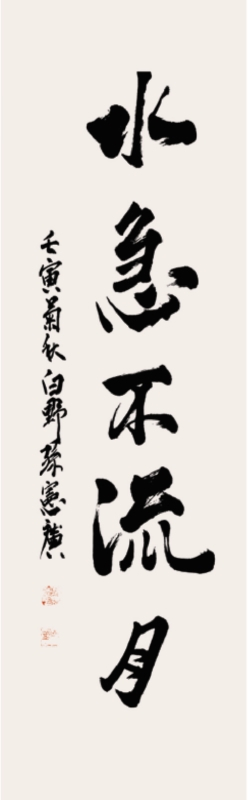 水急不流月
壬寅菊秋白野孫憲廣